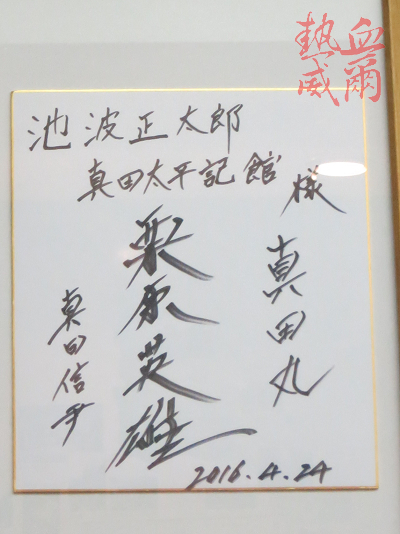 熱血
威爾
池波正太郎
真田太平記館 様
真田丸
栗原英雄
真田信尹
2016.4.24